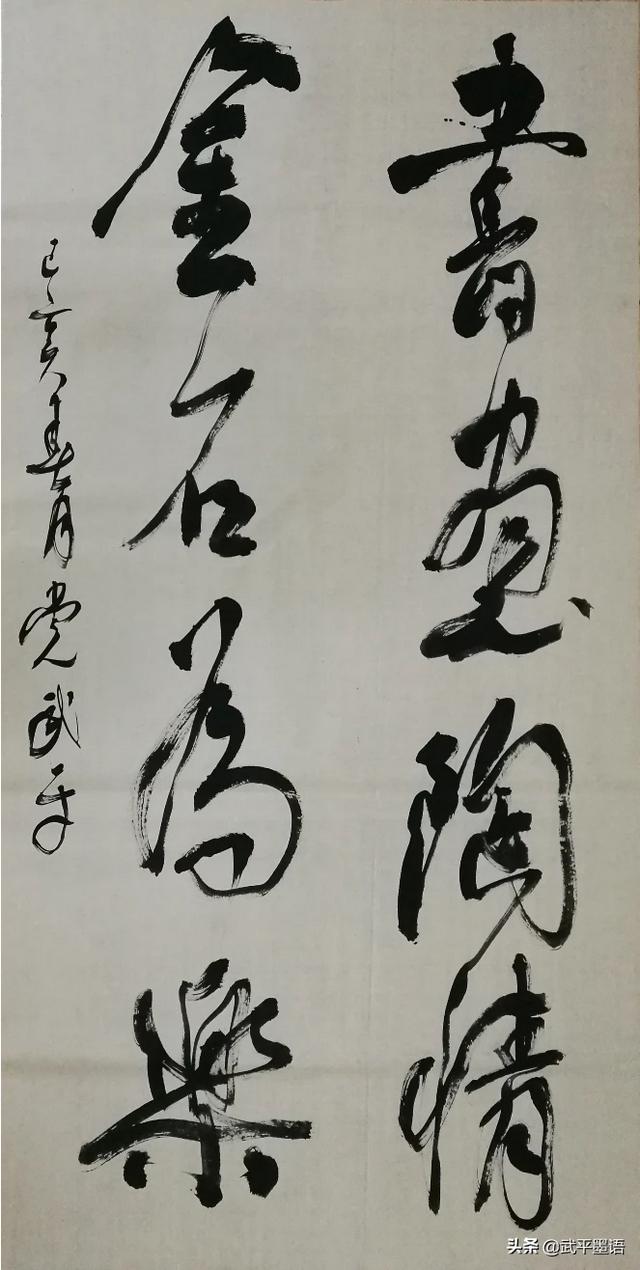 書畫陶情
金石為樂
己亥年七月党武平
头条 @武平墨语